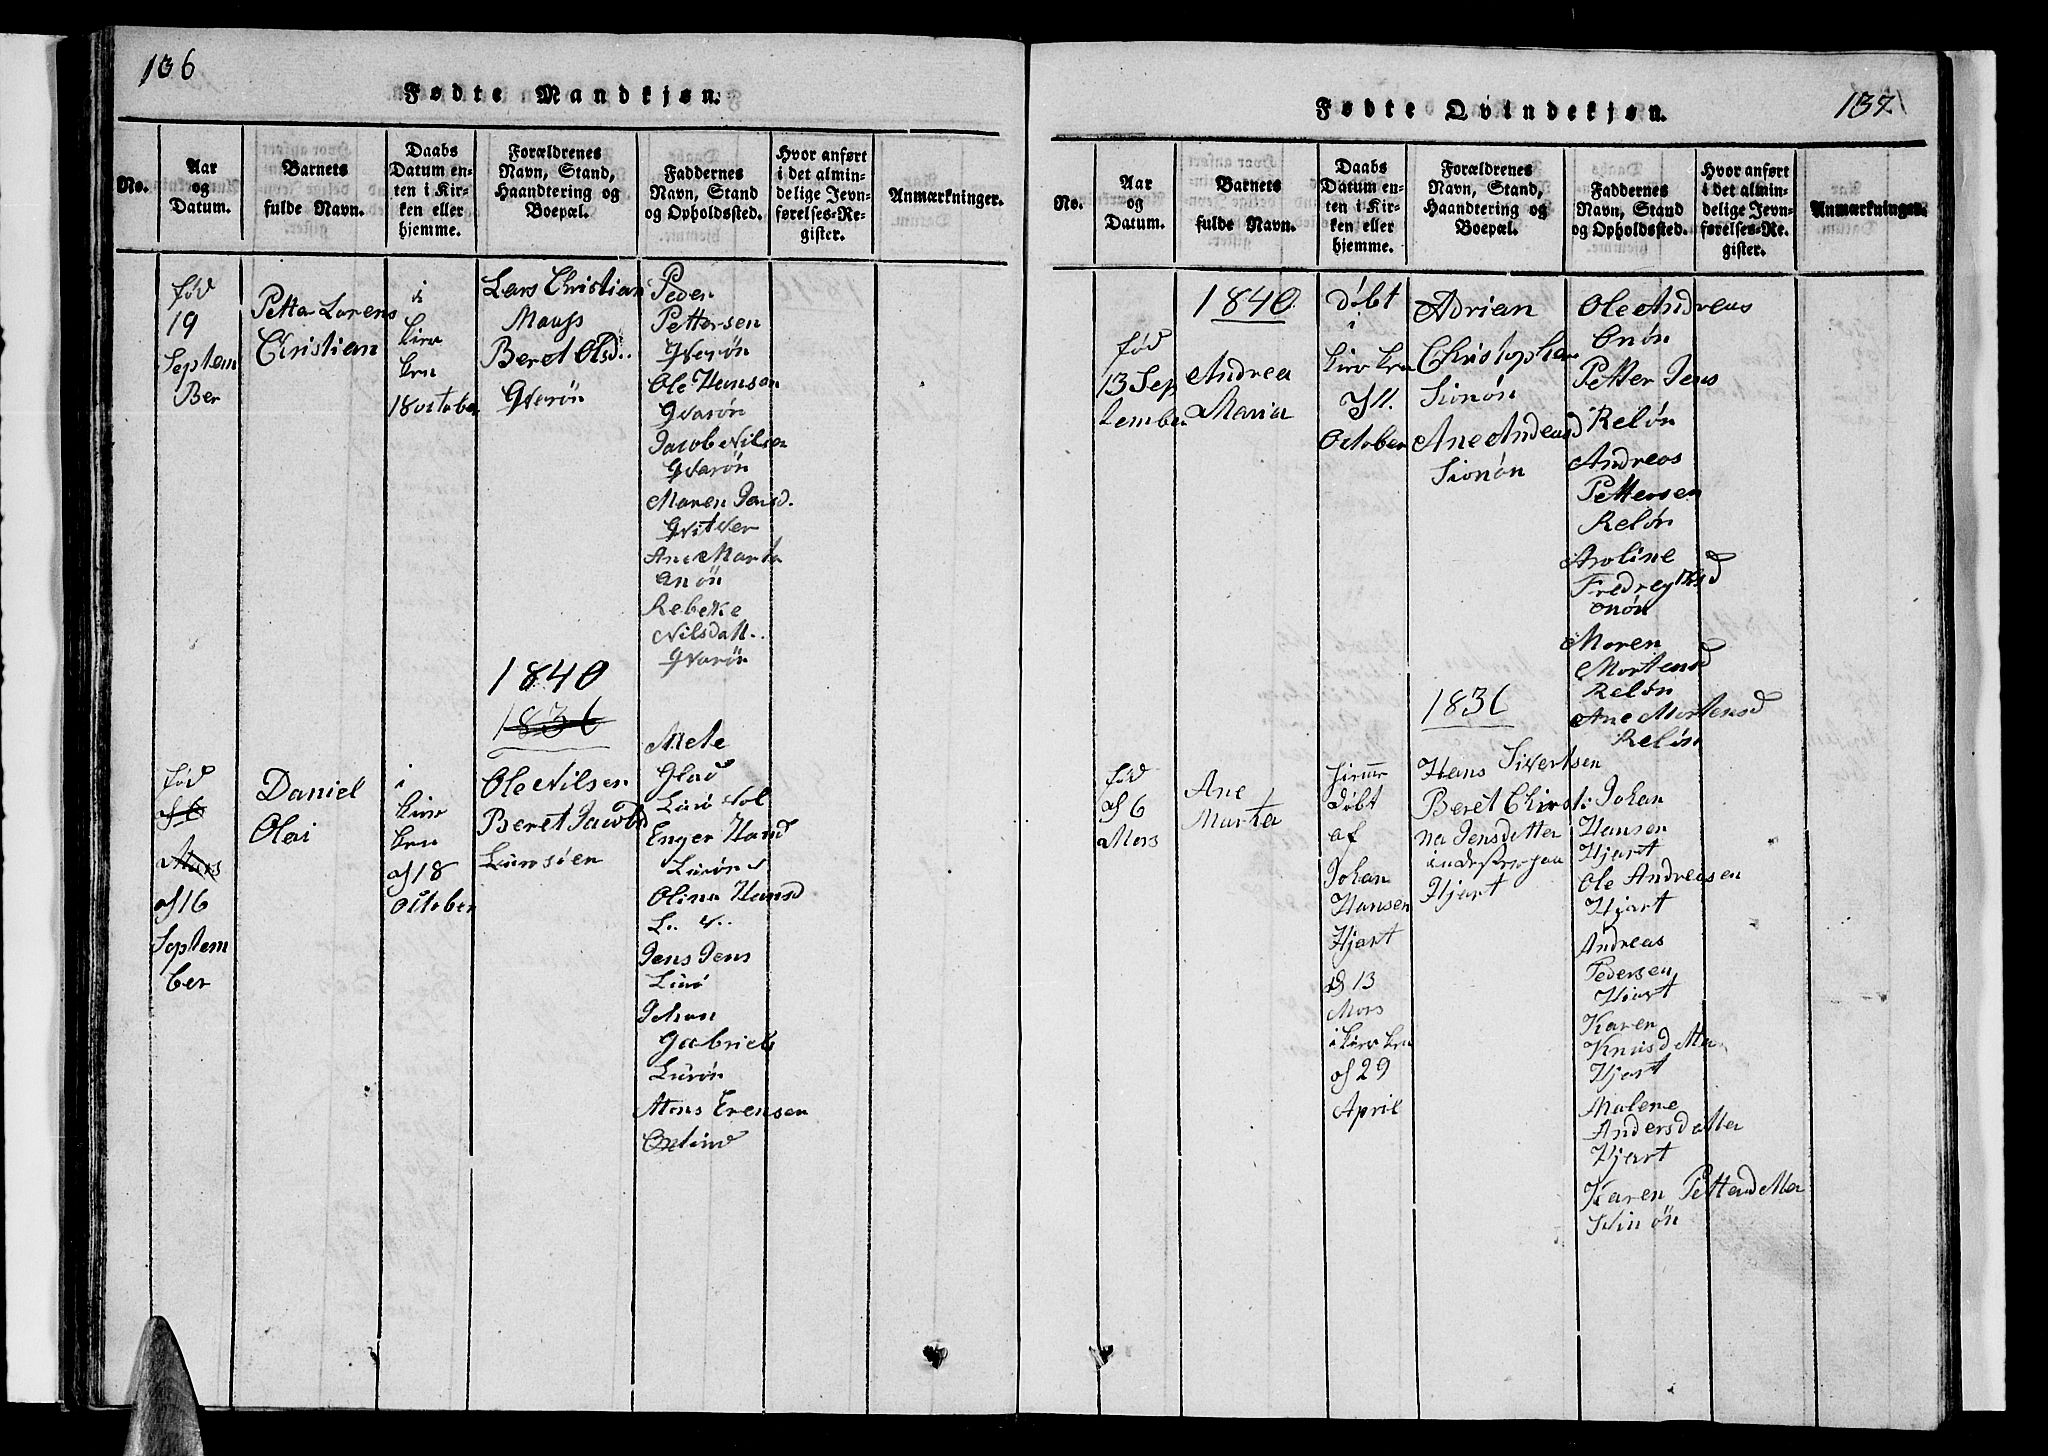 136
Fødte Mandkjøn.
No.
Aar
og
Datum.
Barnets
fulde Navn.
Daabs
Datum en-
ten i Kir-
ken eller
hjemme.
Forældrenes
Navn, Stand,
Haandtering og
Boepæl.
Faddernes
Navn, Stand
og Opholdssted.
Hvor anført
i det almin-
delige Jevn-
førelses-Re-
gister.
Anmærkninger.
fød
19
Septem
Ber
Petter Lorens
Christian
i
kirr
ken
18 october
Lars Christian
Beret Olsd..
Qvarøn
Peder
Pettersen
Qvarøn
Ole Hansen
Qvarøn
Jacob Nilsen
Qvarøn
Maren Jensd.
Ane Marta
onøn
Rebeke
Nilsdatt..
Qvarøn
1840
1836
fød
d 6
Mars
d 16
Septem
ber
Daniel
Olai
i
kirr
ken
d 18
October
Ole Nilsen
Beret Jacobsd
Lurøen
Mele
Glad
Enger Hansd
Lurøn
Olina Hansd
Jens Jens
Lurø
Johan
Gabriels
Lurøn
Mons Erensen
137
Fødte Qvindekjøn.
No.
Aar
og
Datum.
Barnets
fulde Navn.
Daabs
Datum en-
ten i Kir-
ken eller
hjemme.
Forældrenes
Navn, Stand,
Haandtering og
Boepæl.
Faddernes
Navn, Stand
og Opholdssted.
Hvor anført
i det almin-
delige Jevn-
førelses-Re-
gister.
Anmærkninger.
1840
fød
13 Sep
tember
Andrea
Maria
døbt
i
kirr ken
d 11.
October
Adrian
Christophersen
Sionøn
Ane Andreasd
Sionøn
Ole Andreas
Onøn
Petter Jens
Reløn
Andreas
Pettersen
Reløn
Aroline
onøn
Maren
Mortensd
Reløn
Ane Mortensd
Reløn
1836
fød
d 6
Mars
Ane
Marta
hjemme
døbt
af
Johan
Hansen
Hjart
d 13
Mars
i kirr ken
d 29
April
Hans Sivertsen
Beret Christi
na Jensdetter
Hjart
Johan
Hansen
Hjart
Ole Andreasen
Hjart
Andreas
Pedersen
Hjart
Karen
Knusdetter
Hjart
Malene
Andersdatter
Hjart
Karen Petterdetter